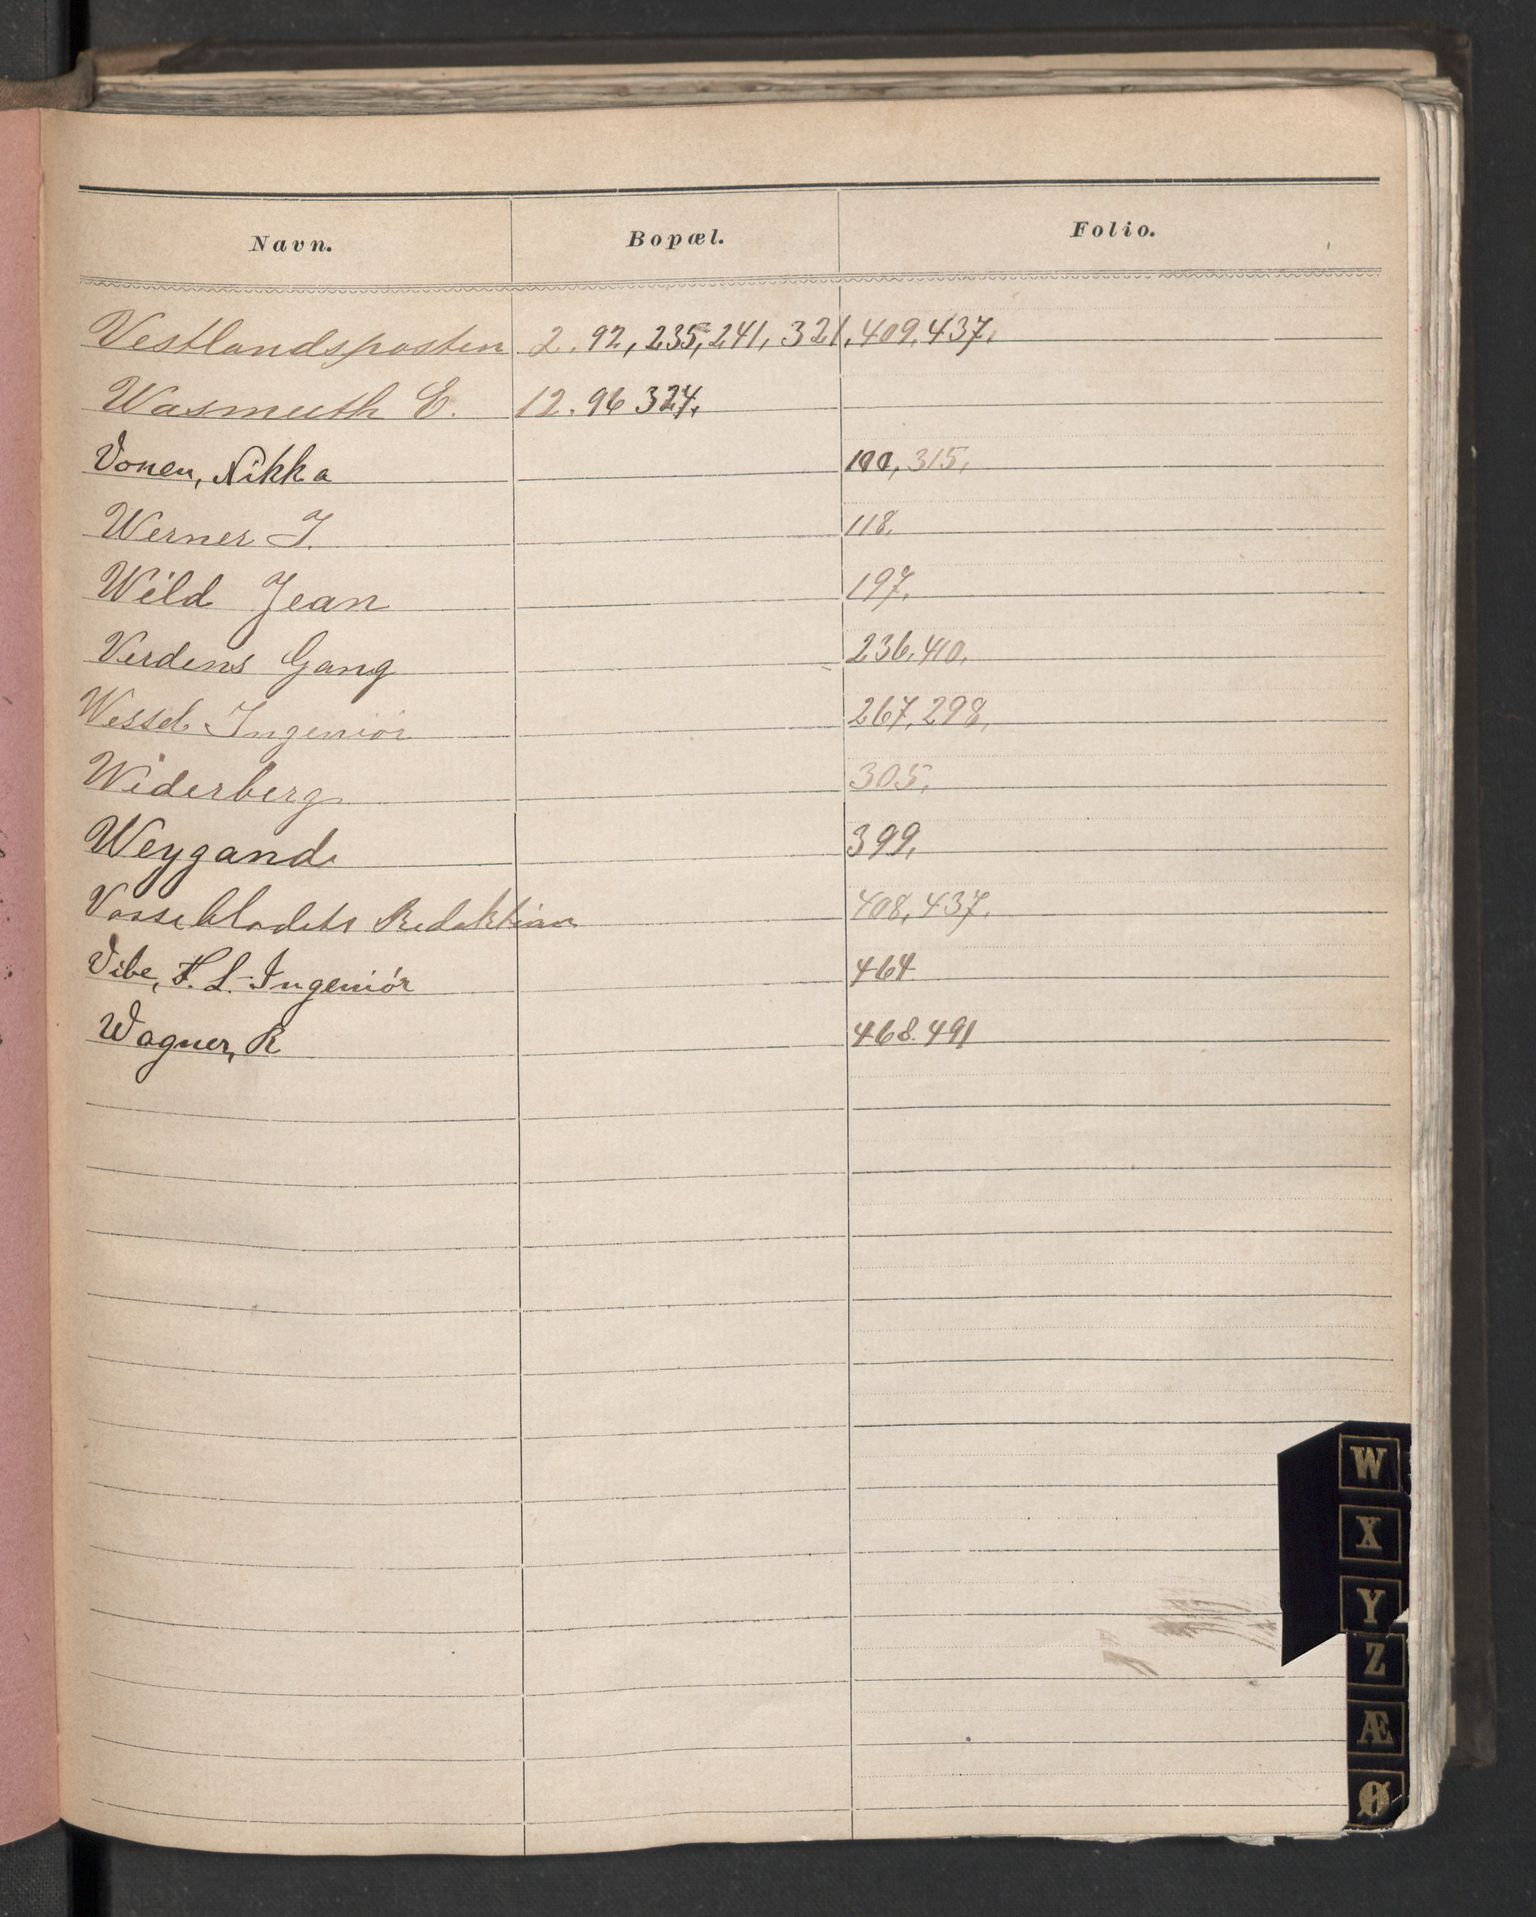 Navn. Bopæl. Folio.
Vestlandsposten 2. 92, 235, 241, 321, 409, 437.
Wasmuth E. 12. 96 324.
Vonen, Nikka 100, 315.
Werner J. 118.
Wild Jean 197.
Verdens Gang 236. 410.
Wessel Ingeniör 267, 298,
Widerberg 305.
Weygand 399.
Vosse bladets Redaktion 408, 437.
Vibe, F. L. Ingeniör 464
Wagner, R 468. 491
W
X
Y
Z
Æ
Ø